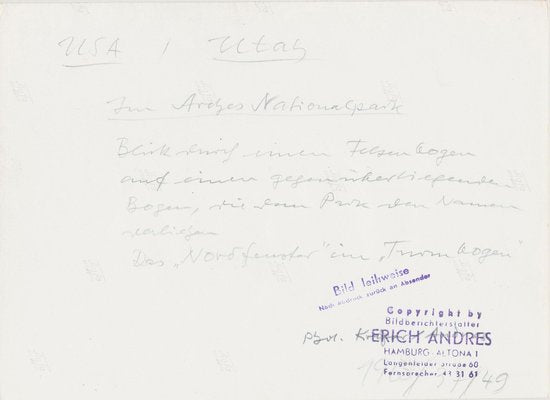 USA / Utah
Im Arches Nationalpark
Blick durch einen Felsenbogen
auf einen gegenüberliegenden
Bogen, die dem Park den Namen
verliehen
Das „Nordfenster“ im „Turmbogen“
Bild leihweise
Nach Abdruck zurück an Absender
Copyright by
Bildberichterstatter
phot. ERICH ANDRES
HAMBURG-ALTONA 1
Langenfelder Straße 68
Fernsprecher 43 31 61